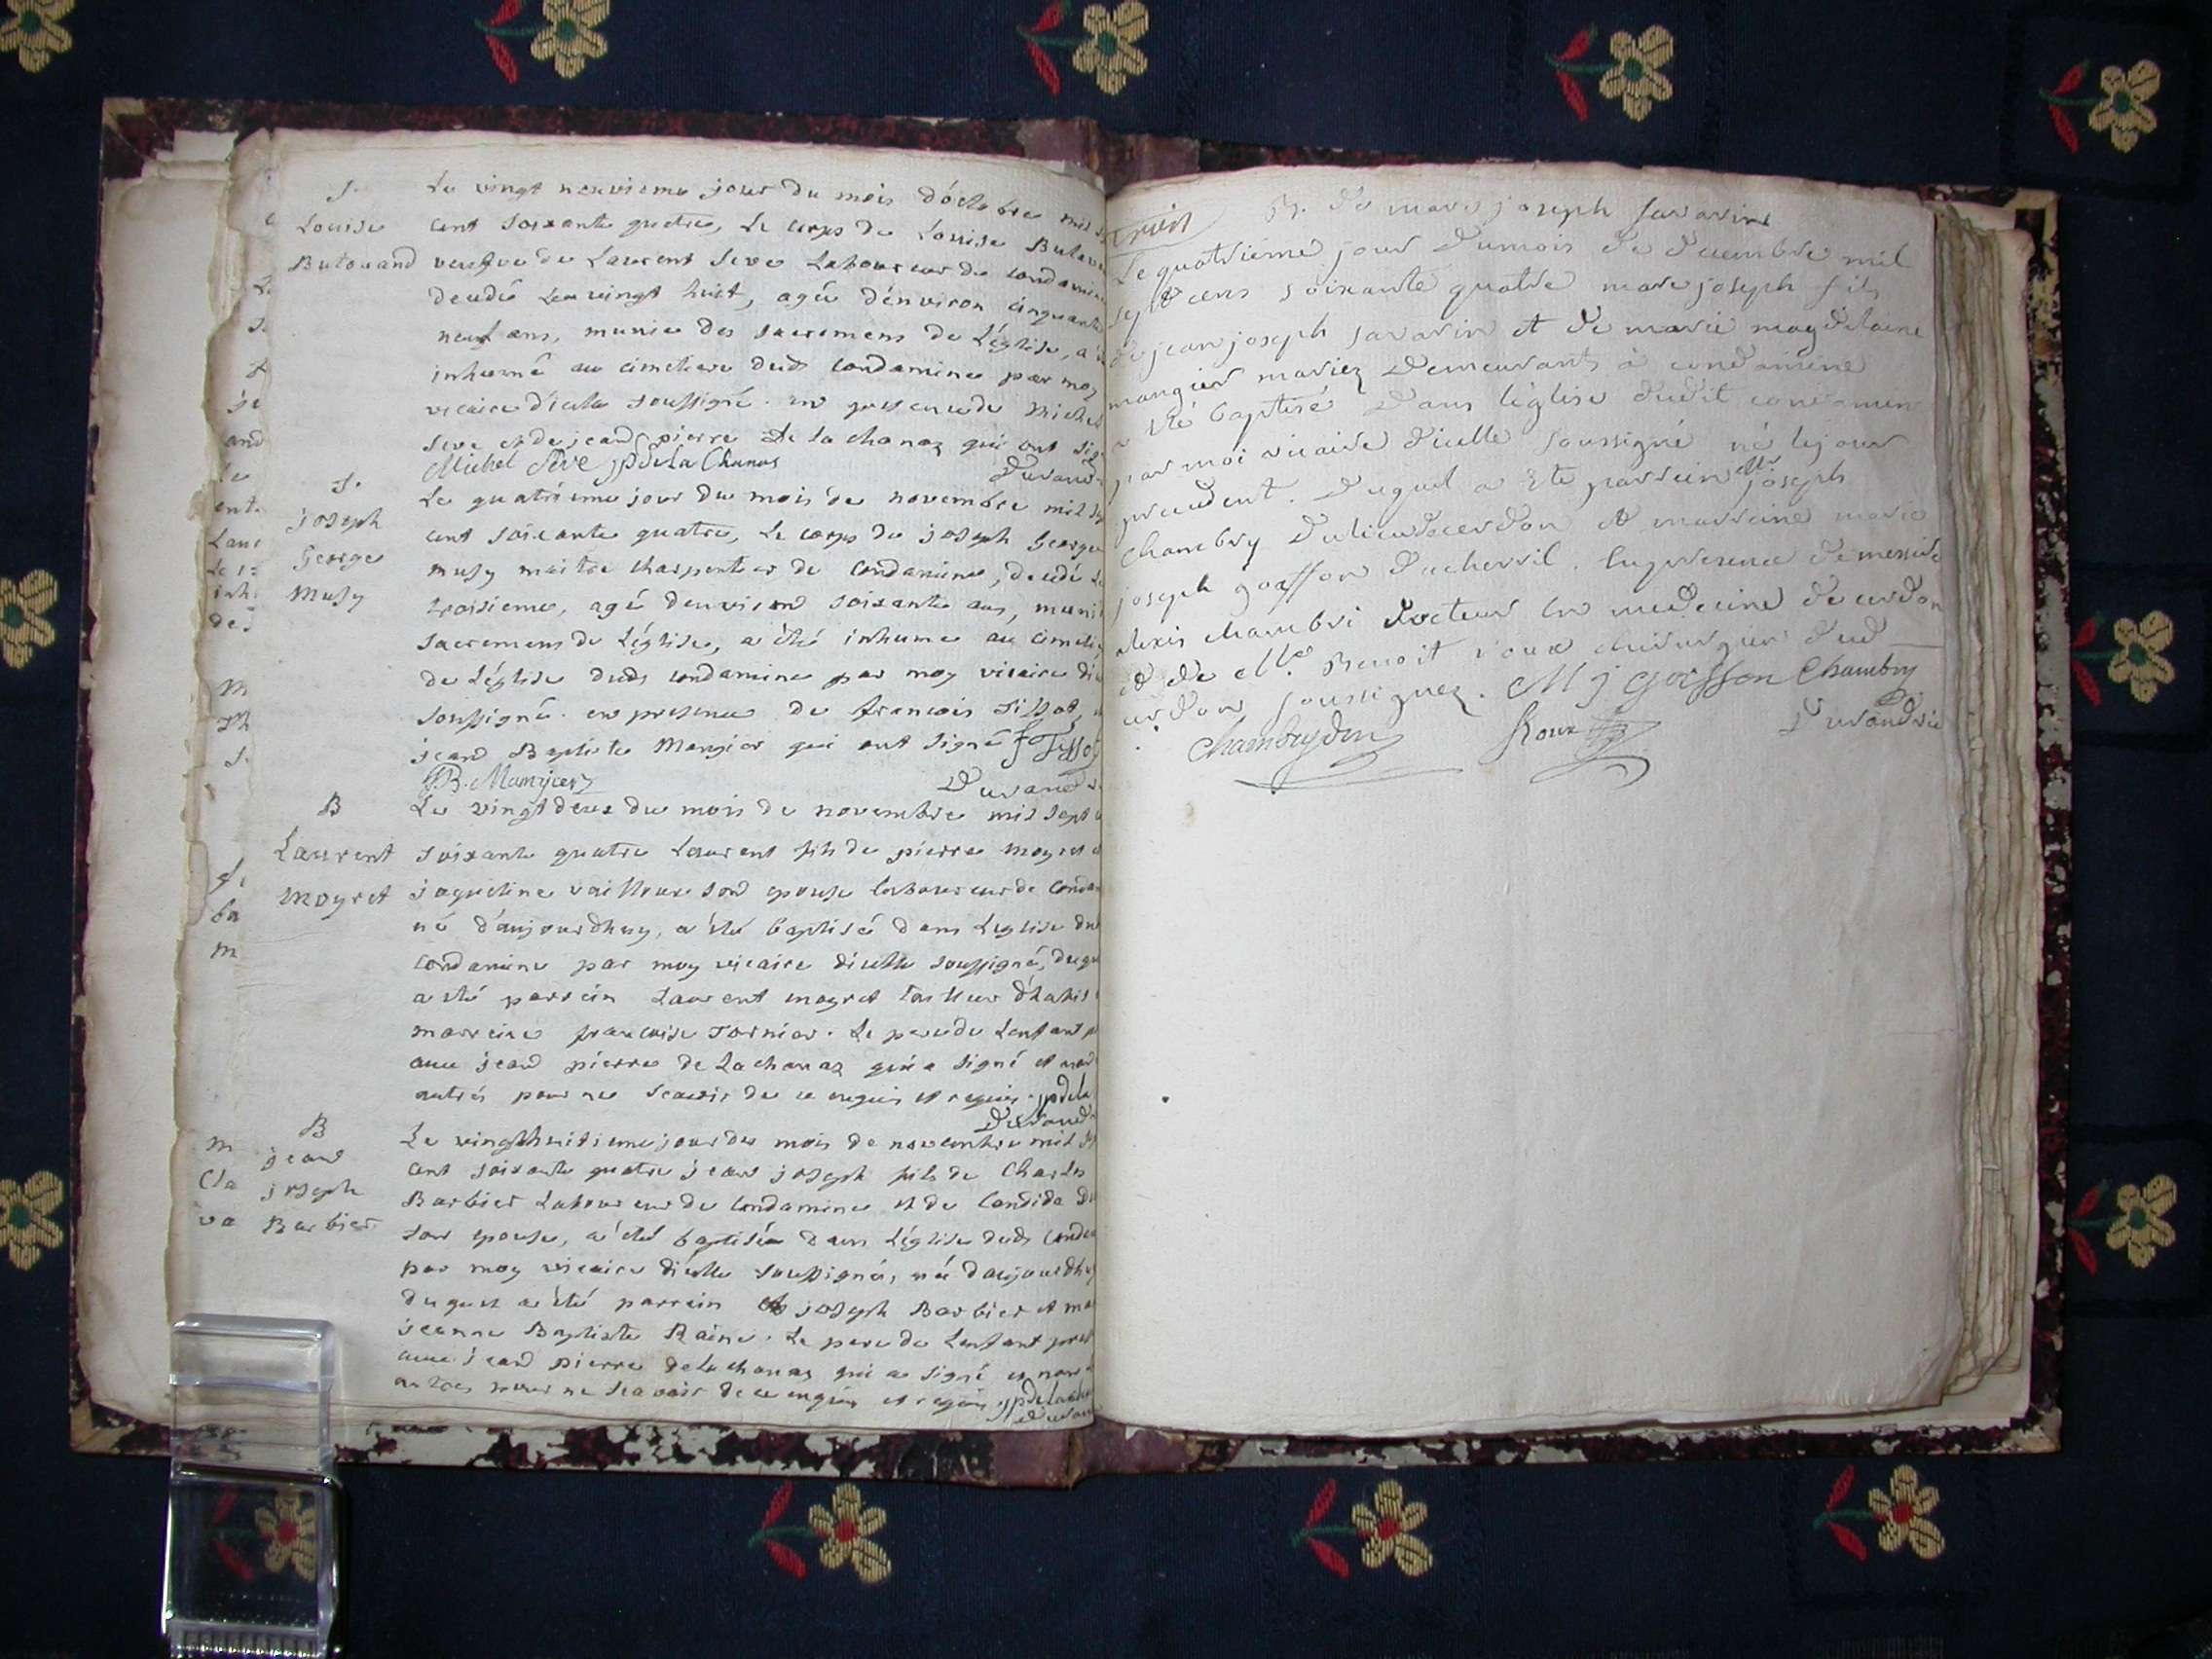 S.
Louise
Butavand
Le vingt neuvieme jour du mois d'octobre mil
cent soixante quatre, Le corps de Louise
veufve de Laurent Seve Laboureur de
decedée Le vingt huit, agée d'environ cinquante
neuf ans, munie des sacremens de L'église, a
inhumé au cimetiere dudt Condamine par moy
vicaire d'icelle soussigné. en presence de Michel
Seve et de jean pierre De la chanaz qui ont
Michel Seve jp De La Chanas
S.
joseph
George
Musy
Le quatrième jour du mois de novembre mil
cent soixante quatre, Le corps de joseph George
musy maitre charpentier de Condamine, decedé
troisieme, agé d'environ soixante ans, muni
sacremens de L'église, a été inhumé au
de L'église dudt Condamine par moy vicaire
soussigné. en presence de francois Tissot,
jean Baptiste Mangier qui ont signé f Tissot
JB. Mangier
B
Laurent
Moyret
Le vingt deux du mois de novembre mil sept
soixante quatre Laurent fils de pierre moyret
jaqueline vailloux son epouse laboureur de
né d'aujourdhuy, a été baptisé dans L'eglise
Condamine par moy vicaire d'icelle soussigné,
a été parrein Laurent moyret tailleur
marreine francoise Tornier. Le pere de L'enfant
avec jean pierre de Lachanaz qui a signé et non
autres pour ne scavoir de ce enquis et requis.
B
jean
joseph
Barbier
Le vingthuitieme jour du mois de novembre mil
cent soixante quatre jean joseph fils de Charles
Barbier Laboureur de Condamine et de Candida
son epouse, a été baptisé dans L'église dudt
par moy vicaire d'icelle soussigné, né d'aujourdhuy
duquel a été parrein joseph Barbier et
jeanne Baptiste Raine. Le pere de L'enfant
avec jean pierre delachanaz qui a signé et non
autres pour ne scavoir de ce enquis et requis.
B. de marc joseph savarin
Le quatrième jour du mois de decembre mil
sept cens soixante quatre marc joseph fils
de jean joseph savarin et de marie magdelaine
mangier mariez demeurants à condamine
a été baptisé dans l'église dudit
par moi vicaire d'icelle soussigné né le jour
precedent. duquel a été parrein Mr joseph
chambry du lieu de cerdon et marreine marie
joseph goiffon. En presence de
alexis chambri docteur en medecine de cerdon
et de Mre Benoit roux chirurgien dud
cerdon soussignez. M j goiffon Chambry
Chambry Roux